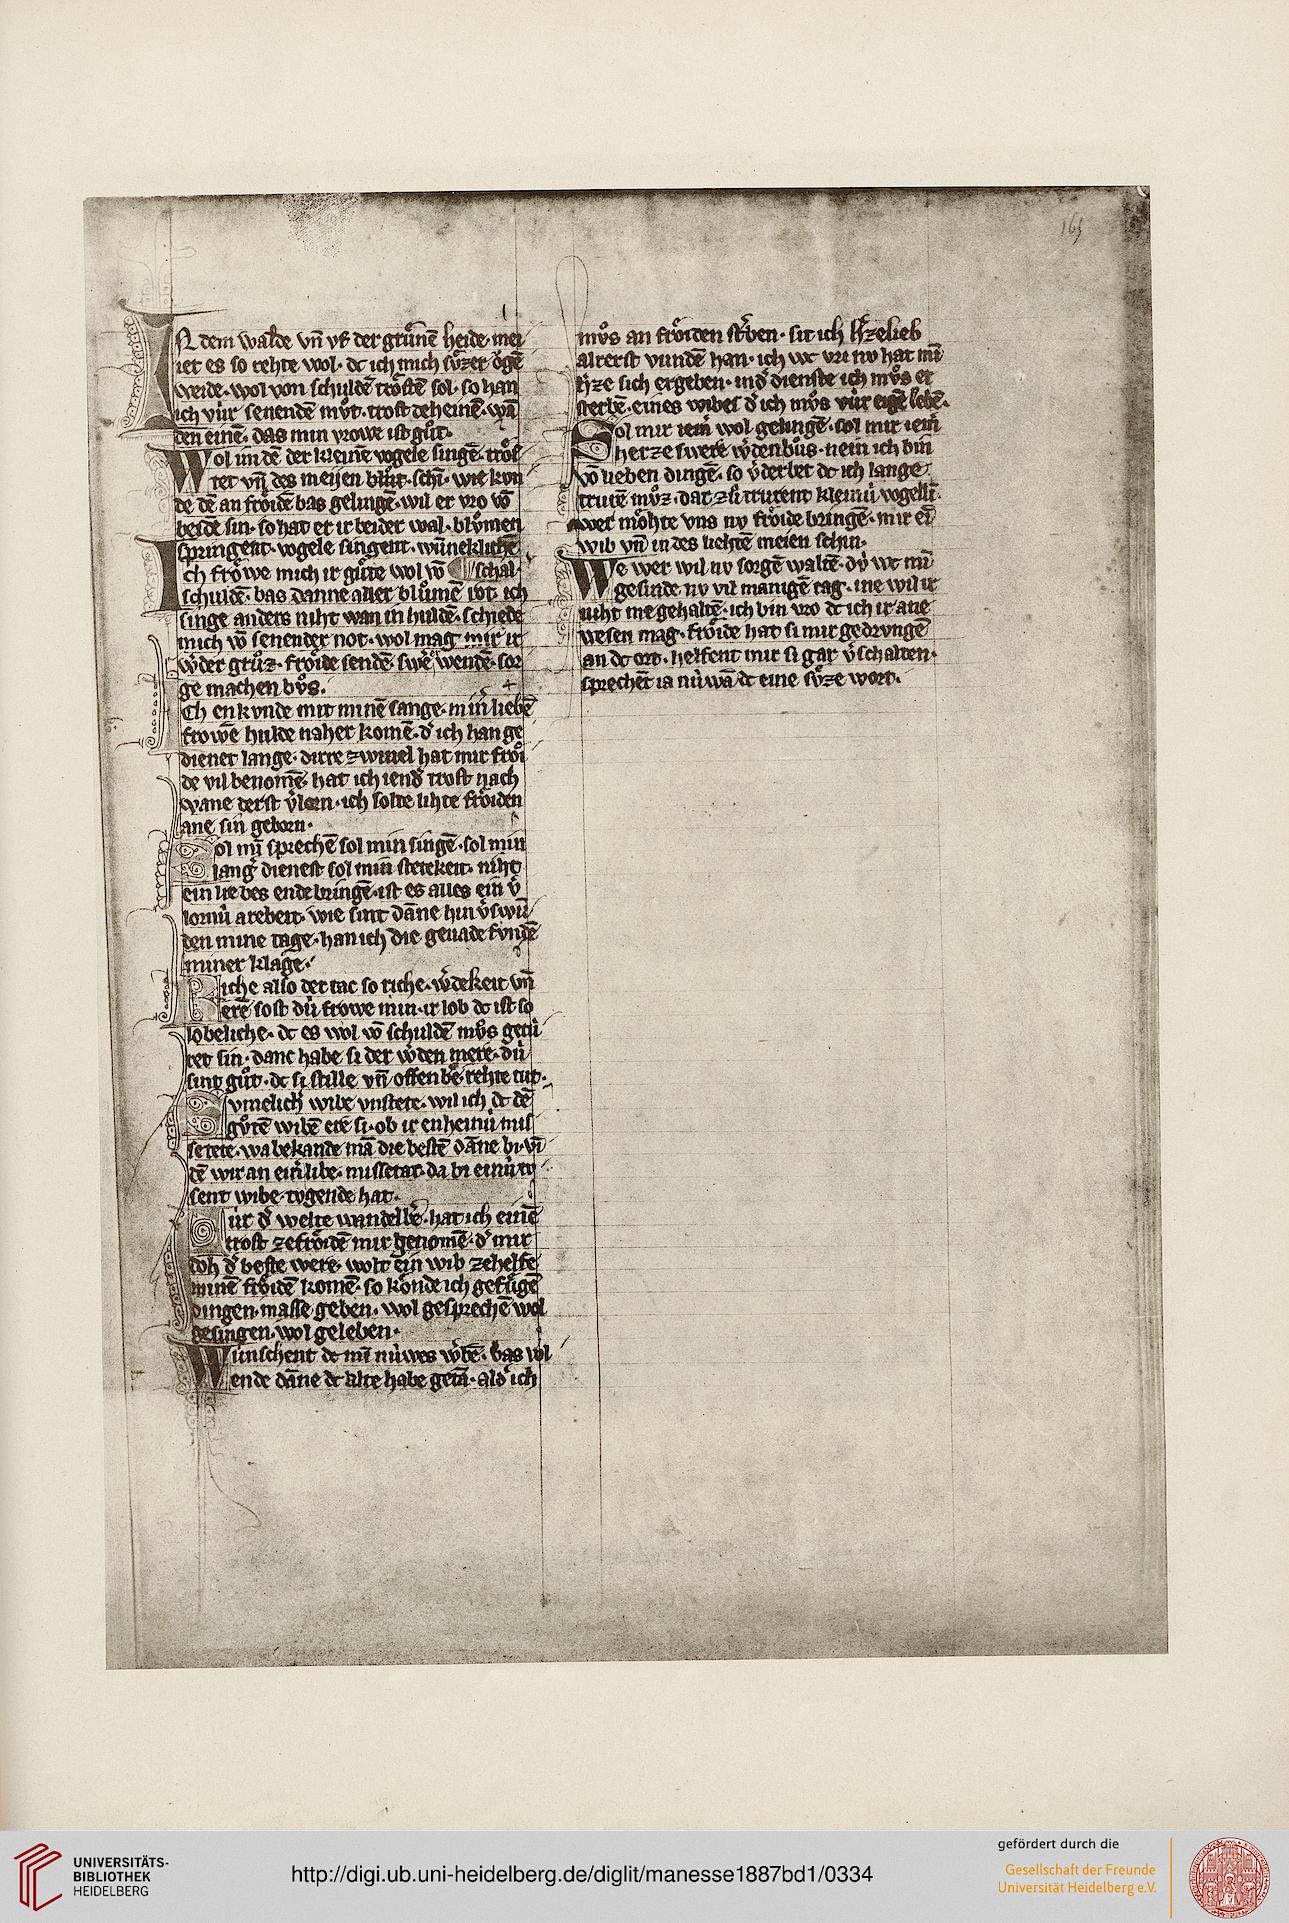 165
IN dem walde vn̄ vf der grůnē heide· mei
iet es so rehte wol· dc ich mich sůzer ǒgē
weide· wol von schuldē trôstē sol· so han
ich vúr senendē můt· trost deheinē· wā
den einē· das min vrowe ist gůt·
Wol im dē der kleinē vogele singē· trôs
tet vn̄ des meijen blůt· schī· wie kvn
de dē an frôidē bas gelingē· wil er vro vō
beidē sin· so hat er ir beider wal· blůmen
springent· vogele singent· wūneklichē schal·
Ich frôwe mich ir gůte wol vō
schuldē· bas danne aller blůmē rot· ich
singe anders niht wan in huldē· schiede
mich vō senender not· wol mag mir ir
wͥder grůz· frôide sendē swēͬ wendē· sor
ge machen bůs·
Ich enkvnde mit minē sange· minͬ liebē
frowē hulde naher komē· dͬ ich han ge
dienet lange· dirre zwiuel hat mir frôi
de vil benomē· hat ich iendͬ trost nach
wane derst vͬlorn· ich solte lihte frôiden
ane sin geborn·
Sol mī sprechē sol min singē· sol min
langͬ dienest sol min stetekeit· niht
ein liebes ende bringē· ist es alles ein vͬ
lornú arebeit· wie sint dāne hin vͬswū
den mine tage· han ich die genade fvndē
miner klage·
Riche also der tac so riche· wͬdekeit vn̄
erē so st dú frowe min· ir lob dc ist so
lobeliche· dc es wol vō schuldē můs getú
ret sin· danc habe si der wͬden mere· dú
sint gůt· dc si stille vn̄ offenbēͬ rehte tůt·
Svmelichͬ wibe vnstete· wil ich dc dē
gůtē wibē ere si· ob ir enheinú mis
setete· wa bekande mā die bestē dāne bi· vī
dē wir an einͬ libe· missetat· da bi einú tv
sent wibe· tvgende hat·
Fúr dͬ welte wandelbēͬ· hat ich einē
trost ze frôidē mir genomē· dͬ mir
doh dͬ beste were· wolt ein wib ze helfe
minē frôidē komē· so kônde ich gefůgē
dingen masse geben· wol gesprechē wol
gesingen· wol geleben·
Wúnschent dc mī núwes wͬbē· bas vol
ende dāne dc alte habe getā· aldͬ ich
můs an frôiden stͬben· sit ich hͬzelieb
alrerst vundē han· ich wc vri nv hat mī
hͬze sich ergeben· in dͬ dienste ich můs er
sterbē· eines wibes dͬ ich můs vúr eigē lebē·
Sol mir iemͬ wol gelingē· sol mir iemͬ
herze swere wͬden bůs· nein ich bin
vō lieben dingē· so vͬderbet dc ich lange
trurē můz· daz zů trurent kleinú vogelli·
wer môhte vns nv frôide bringē· mir ei
wib vn̄ in des liehtē meien schin·
We wer wil nv sorgē waltē· dú wc mī
gesinde nv vil manigē tag· ine wil ir
niht me gehaltē· ich bin vro dc ich ir ane
wesen mag· frôide hat si mir gedrvngē
an dc ort· helfent mir si gar vͬschalten·
sprechēt ia núwā dc eine sůze wort·
UNIVERSITÄTS-
BIBLIOTHEK
HEIDELBERG
http://digi.ub.uni-heidelberg.de/diglit/manesse1887bd1/0334
gefördert durch die
Gesellschaft der Freunde
Universität Heidelberg e.V.